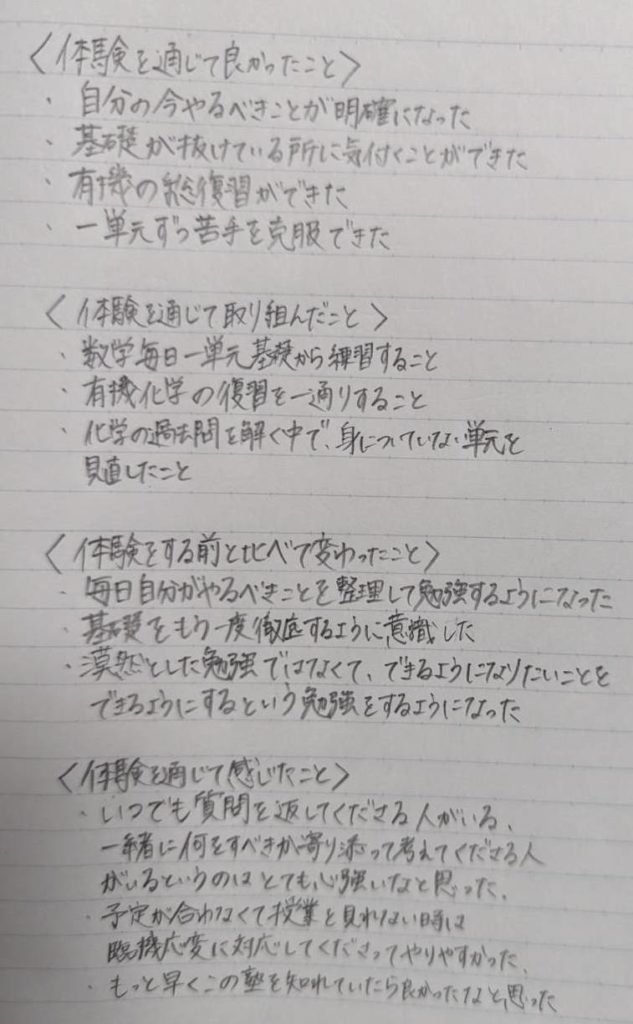 〈体験を通じて良かったこと〉
・自分の今やるべきことが明確になった
・基礎が抜けている所に気付くことができた
・有機の総復習ができた
・一単元ずつ苦手を克服できた
〈体験を通じて取り組んだこと〉
・数学毎日一単元基礎から練習すること
・有機化学の復習を一通りすること
・化学の過去問を解く中で、身についていない単元を
見直したこと
〈体験をする前と比べて変わったこと〉
・毎日自分がやるべきことを整理して勉強するようになった
・基礎をもう一度徹底するように意識した
・漠然とした勉強ではなくて、できるようになりたいことを
できるようにするという勉強をするようになった
〈体験を通じて感じたこと〉
・いつでも質問を返してくださる人がいる、
一緒に何をすべきか寄り添って考えてくださる人
がいるというのはとても心強いなと思った。
・予定が合わなくて授業を見れない時は
臨機応変に対応してくださってやりやすかった。
・もっと早くこの塾を知れていたら良かったなと思った